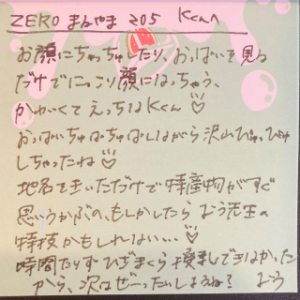 ZERO まんやま 205 Kくんへ
お顔にちゅっちゅしたり、おっぱいを見る
だけでにっこり顔になっちゃう、
かわいくてえっちなKくん♡
おっぱいちゅぱちゅぱしながら沢山ぴゅっぴゅ
しちゃったね♡
地名をきいただけで特産物がすぐ
思いうかぶの、もしかしたら なう先生の
特技かもしれない…♡
時間たりずひざまくら授乳できなかった
から、次はぜーったいしようね? なう